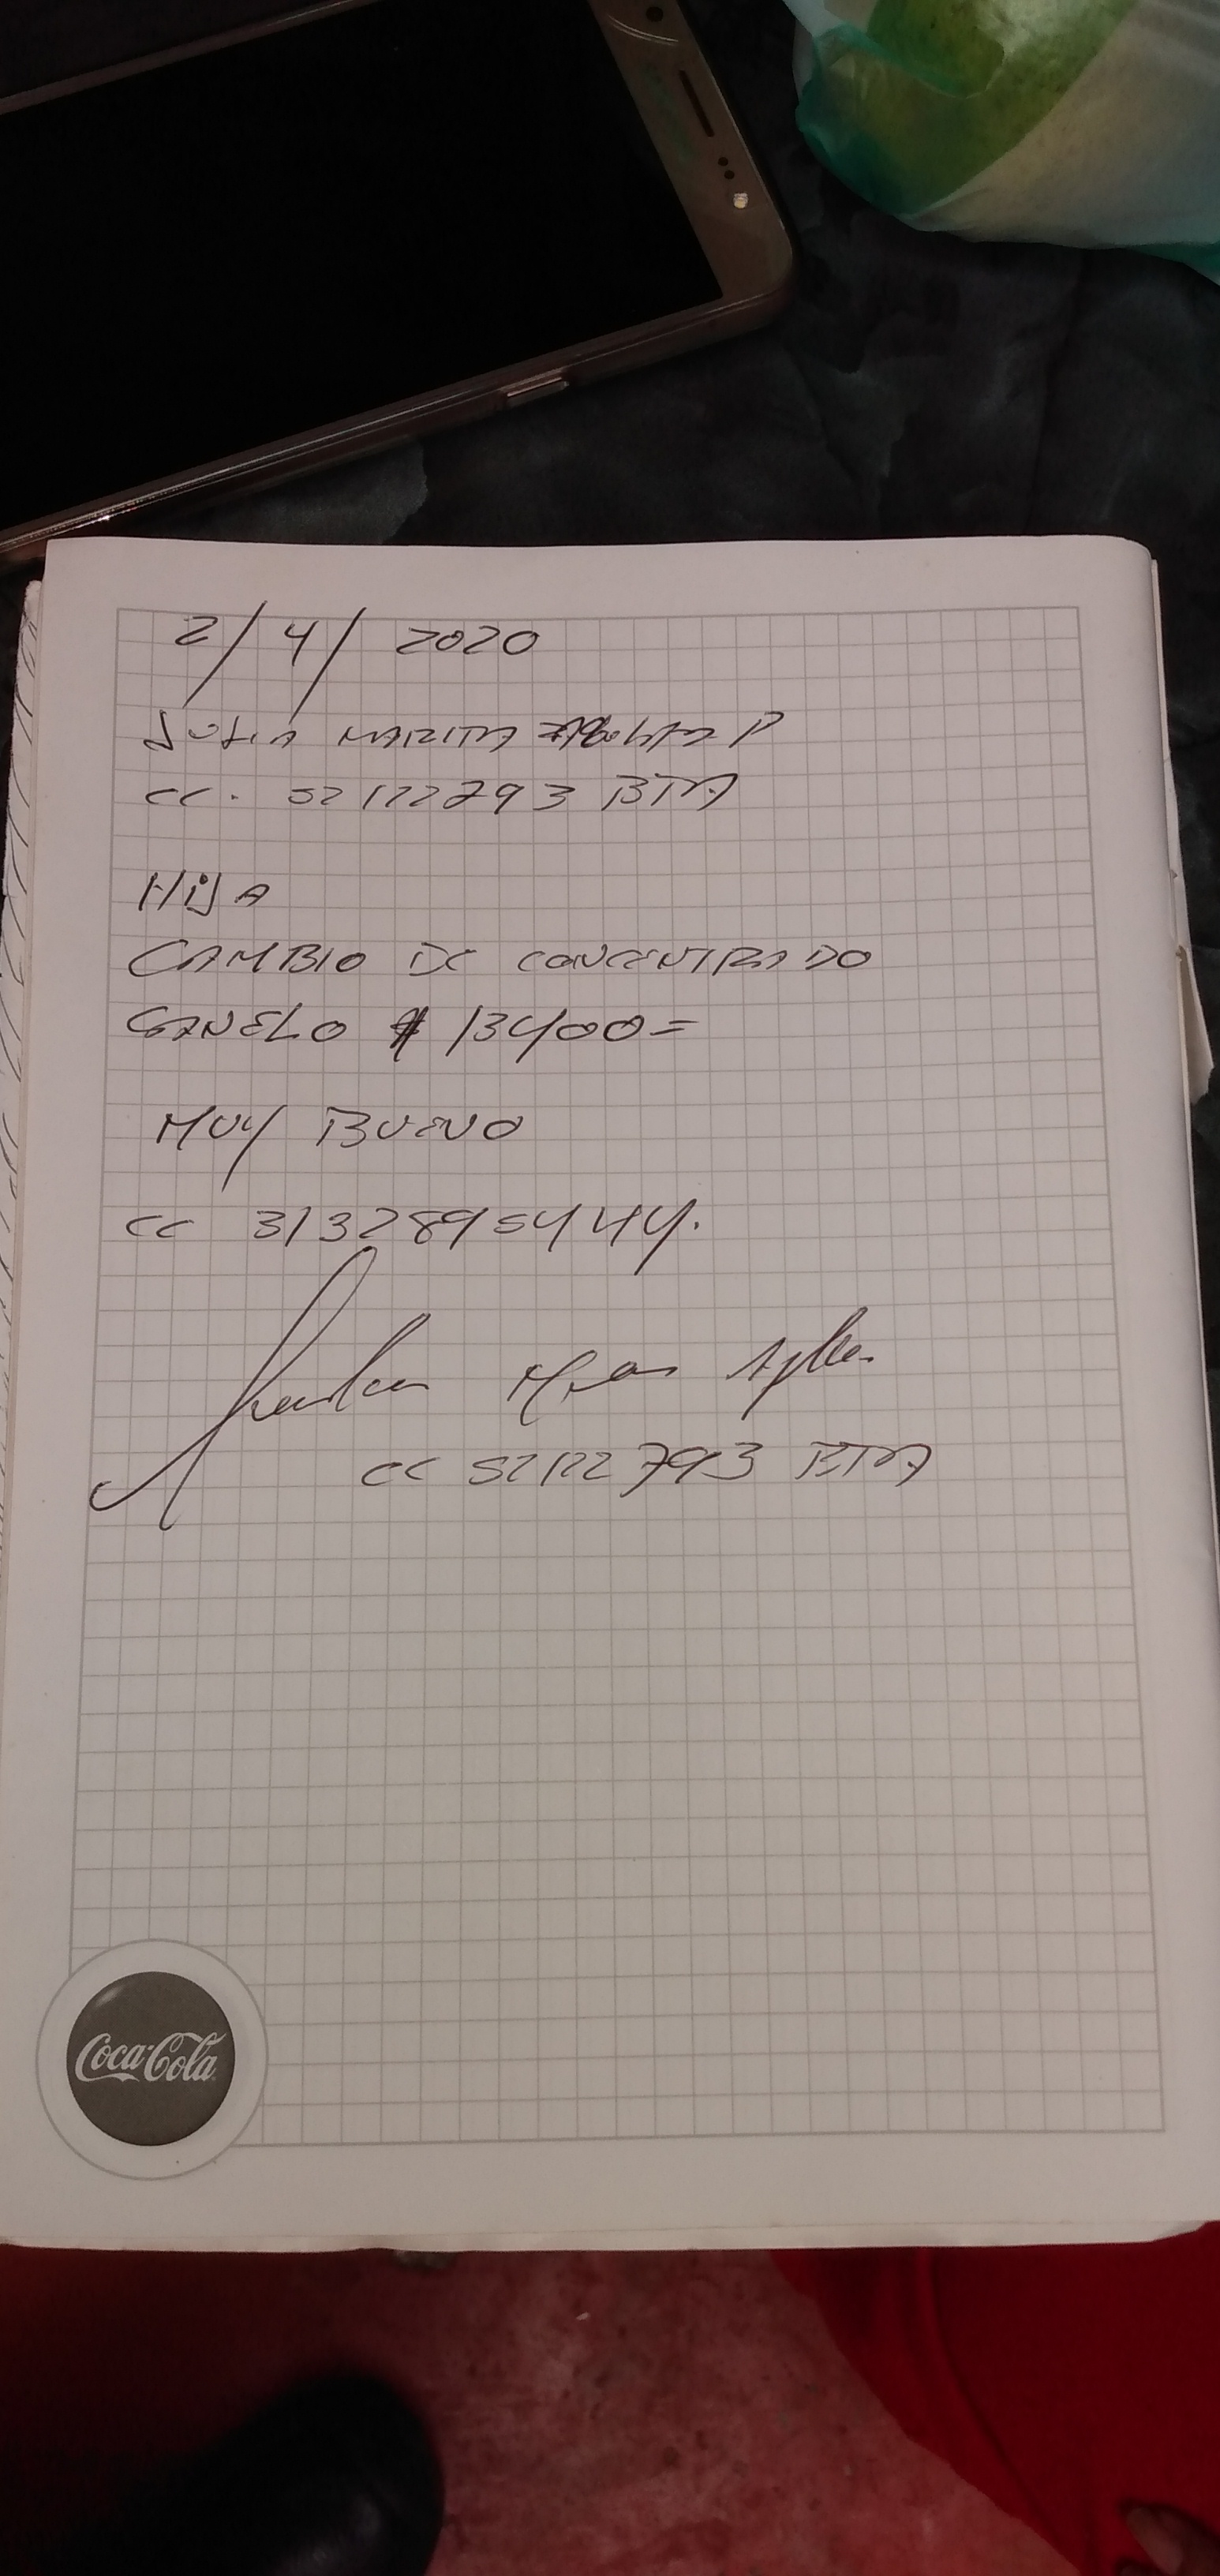 2/4/2020
MARITA P
CC. 52122793 BTA
HIJA
CAMBIO DE CONCENTRADO
CANELO $ 13400=
MUY BUENO
CC 3132895444.
CC 52122793 BTA
Coca-Cola